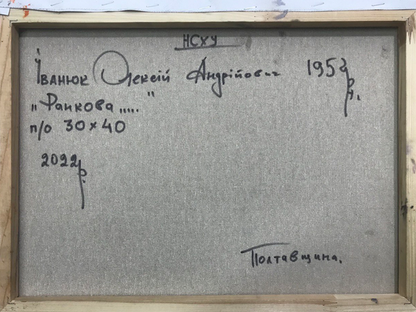 НСХУ
Іванюк Олексій Андрійович 1952 р.н.
„Ранкова....."
п/о 30×40
2022 р.
Полтавщина.